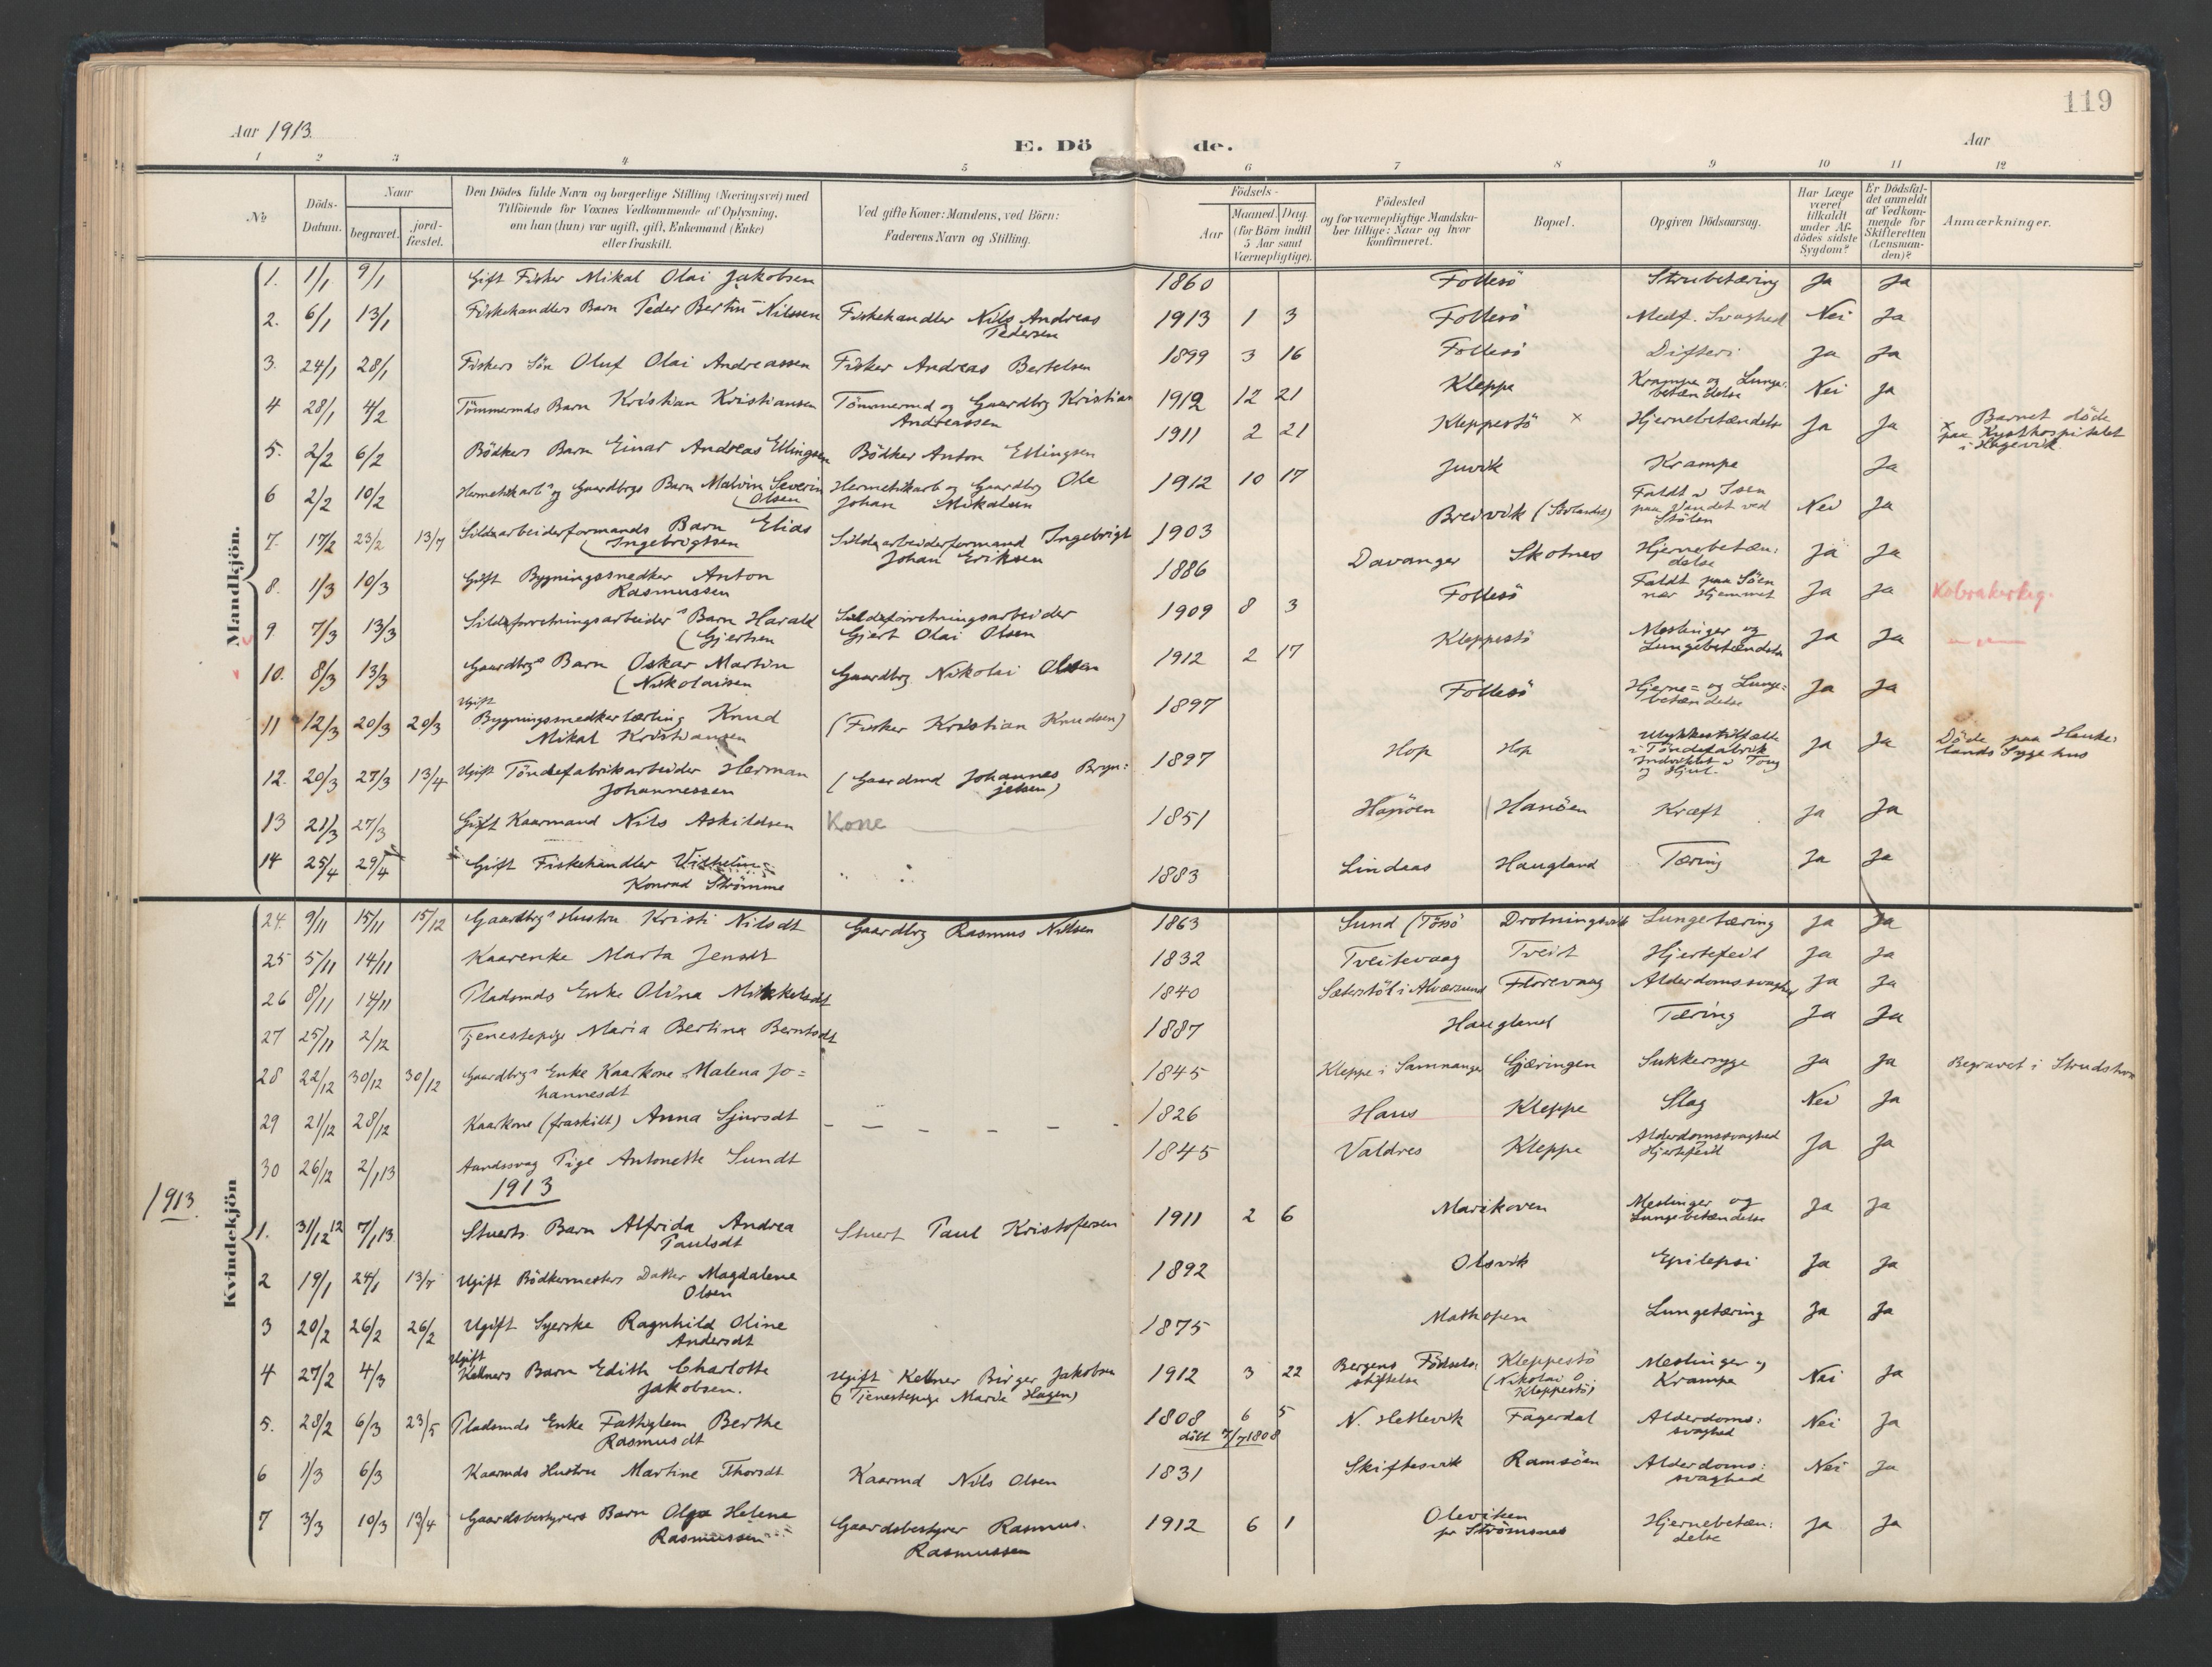 119
Aar 1913.
E. Dö de.
Aar
1 2 3 4 5 6 7 8 9 10 11 12
No
Döds-Datum.
Naar
begravet.
jord-fæstet.
Den Dödes fulde Navn og borgerlige Stilling (Næringsvei) med
Tilföiende for Voxnes Vedkommende af Oplysning,
om han (hun) var ugift, gift, Enkemand (Enke)
eller fraskilt.
Ved gifte Koner: Mandens, ved Börn:
Faderens Navn og Stilling.
Födsels-
Aar
Maaned. Dag.
(for Börn indtil
5 Aar samt
Værnepligtige).
Födested
og for værnepligtige Mandska-
ber tillige: Naar og hvor
konfirmeret.
Bopæl.
Opgiven Dödsaarsag.
Har Læge
været
tilkaldt
under Af-
dödes sidste
Sygdom?
Er Dödsfal-
det anmeldt
af Vedkom-
mende for
Skifteretten
(Lensman-
den)?
Anmærkninger.
Mandkjön.
1. 1/1 9/1 Gift Fisker Mikal Olai Jakobsen 1860 Follesö Strubetæring Ja Ja
2. 6/1 13/1 Fiskehandlers Barn Peder Bertin Nilssen Fiskehandler Nils Andreas 1913 1 3 Follesö Medf. Svaghed Nei Ja
Pedersen
3. 24/1 28/1 Fiskers Sön Oluf Olai Andreassen Fisker Andreas Bertelsen 1899 3 16 Follesö Difteri Ja Ja
4 28/1 4/2 Tömmermds Barn Kristian Kristiansen Tömmermd og Gaardbrg Kristian 1912 12 21 Kleppe Krampe og Lunge- Nei Ja
Andreassen betændelse
5. 2/2 6/2 Bödkers Barn Einar Andreas Ellingsen Bödker Anton Ellingsen 1911 2 21 Kleppestö × Hjernebetændelse Ja Ja × Barnet döde
paa Kysthospitalet
i Hagevik.
6 2/2 10/2 Hermetikarbs og Gaardbrgs Barn Malvin Severin Hermetikarb og Gaardbrg Ole 1912 10 17 Juvik Krampe Ja
Olsen Johan Mikalsen
7. 17/2 23/2 13/7 Sildearbeiderformands Barn Elias Sildearbeiderformand Ingebrigt 1903 Breivik (Sörlandet) Faldt i Isen Nei Ja
(Ingebrigtsen Johan Eriksen paa Vandet ved
Stölen
8. 1/3 10/3 Gift Bygningssnedker Anton 1886 Davanger Skotnes Hjernebetæn: Ja Ja
Rasmussen delse
9 7/3 13/3 Sildeforretningsarbeiders Barn Harald Sildeforretningsarbeider 1909 8 3 Follesö Faldt paa Söen Ja Ja
(Gjertsen Gjert Olai Olsen nær Hjemmet
10. 8/3 13/3 Gaardbrgs Barn Oskar Martin Gaardbrg Nikolai Olsen 1912 2 17 Kleppestö Meslinger og Ja Ja
(Nikolaisen Lungebetændelse
11 12/3 20/3 20/3 Ugift Bygningssnedkerlærling Knud (Fisker Kristian Knudsen) 1897 Follesö Hjerne= og Lunge= Ja Ja
Mikal Kristiansen betændelse
12. 20/3 27/3 13/4 Ugift Töndefabrikarbeider Herman (Gaardmd Johannes Bryn: 1897 Hop Hop Ulykkestilfælde Ja Ja Döde paa Hauke:
Johannessen jelsen) i Töndefabrik lands Sygehus
13 21/3 27/3 Gift Kaarmand Nils Askildsen Kone 1851 Hanöen Hanöen Kræft Ja Ja
14 25/4 29/4 Gift Fiskehandler Vilhelm 1883 Lindaas Haugland Tæring Ja Ja
Konrad Strömme
Kvindekjön
24. 9/11 15/11 15/12 Gaardbrgs Hustru Kristi Nilsdt Gaardbrg Rasmus Nilsen 1863 Sund (Tösö Drotningsvik Lungetæring Ja Ja
25 5/11 14/11 Kaarenke Marta Jensdt 1832 Tveitevaag Tveit Hjertefeil Ja Ja
26 8/11 14/11 Pladsmds Enke Olina Mikkelsdt 1840 Sæterstöl i Alværsund Florevaag Alderdomssvaghed Ja Ja
27 25/11 2/12 Tjenestepige Maria Bertina Berntsdt 1887 Haugland Tæring Ja Ja
28 22/12 30/12 30/12 Gaardbrgs Enke Kaarkone Malena Jo= 1845 Kleppe i Samnanger Gjæringen Sukkersyge Ja Ja Begravet i Strudshavn
hannesdt
29 21/12 28/12 Kaarkone (fraskilt) Anna Sjursdt – – – – – – 1826 Haus Kleppe Slag Nei Ja
30 26/12 2/1 13 Aandssvag Pige Antonette Sundt 1845 Valdres Kleppe Alderdomssvaghed Ja Ja
Hjertefeil
1913. 1913
1. 31/12 12 7/1 13. Stuerts Barn Alfrida Andrea Stuert Paul Kristofersen 1911 2 6 Marikoven Meslinger og Ja Ja
Paulsdt Lungebetændelse
2 19/1 24/1 13/7 Ugift Bödkermesters Datter Magdalene 1892 Olsvik Epilepsi Ja Ja
Olsen
3 20/2 26/2 26/2 Ugift Syerske Ragnhild Oline 1875 Mathopen Lungetæring Ja Ja
Andersdt
4 27/2 4/3 Ugift Kelners Barn Edith Charlotte Ugift Kelner Birger Jakobsen 1912 3 22 Bergens Födsels: Kleppestö Meslinger og Nei Ja
Jakobsen. Tjenestepige Marie Hagen) stiftelse (Nikolai O Krampe
Kleppestö)
5. 28/2 6/3 23/5 Pladsmds Enke Fattiglem Berthe 1808 6 5 N. Hellevik Fagerdal Alderdoms: Nei Ja
Rasmusdt döbt 7/7 1808 svaghed
6 1/3 6/3 Kaarmds Hustru Martine Thorsdt Kaarmd Nils Olsen 1831 Skiftesvik Ramsöen Alderdoms: Nei Ja
svaghed
7 3/3 10/3 13/4 Gaardsbestyrers Barn Olga Helene Gaardsbestyrer Rasmus 1912 6 1 Oleviken Hjernebetæn: Ja Ja
Rasmussen Rasmussen pr Strömsnes delse